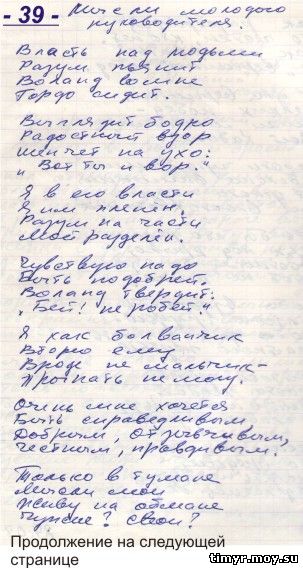 - 39 -
Мысли молодого
руководителя.
Власть над людьми
Разум пьянит
Воланд во мне
Гордо сидит.
Выглядит бодро
Радостный взор
Шепчет на ухо:
"Вот ты и вор."
Я в его власти
Я им пленён.
Разум на части
Мой разделён.
Чувствую надо
Быть подобрей.
Воланд твердит:
"Бей! не робей!"
Я как болванчик
Вторю ему
Вроде не мальчик-
Прогнать не могу.
Очень мне хочется
Быть справедливым,
Добрым, отзывчивым,
Честным, правдивым.
Только в тумане
Мысли мои
Живу на обмане
Чужие? Свои?
Продолжение на следующей
странице
timyr.moy.su